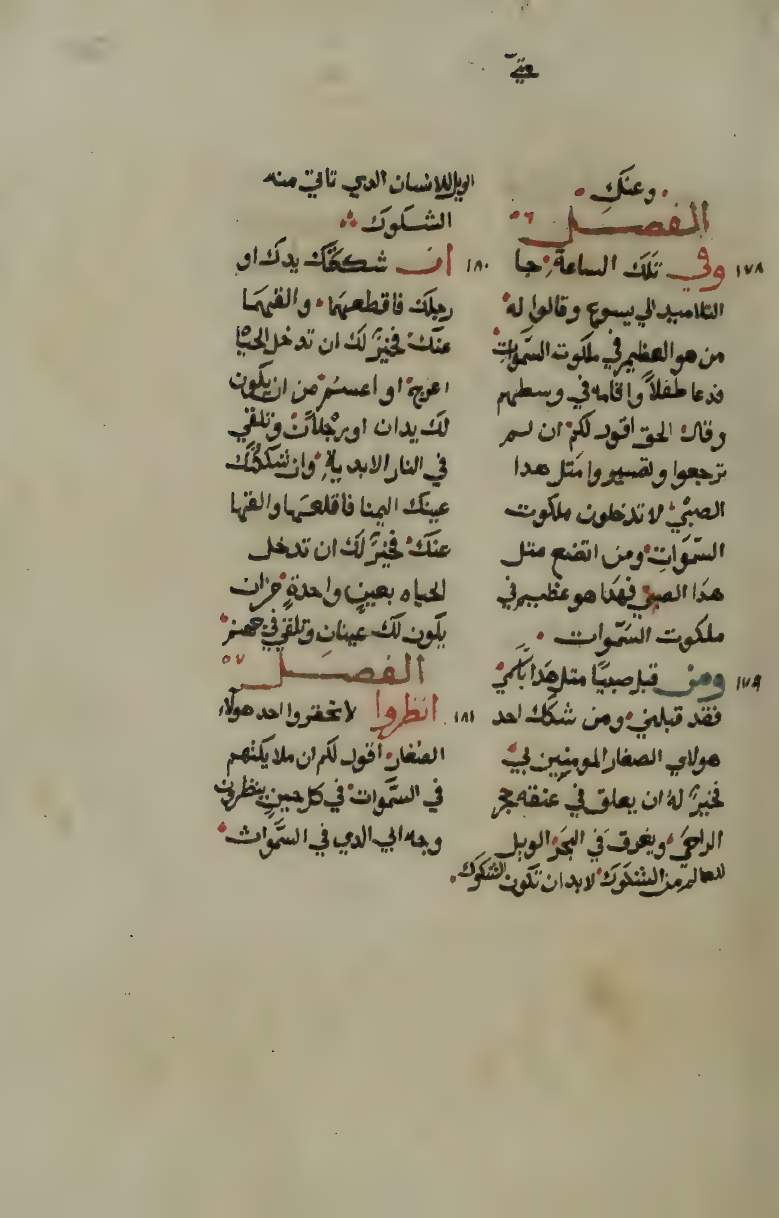 متي
وعنك
الفصل ٥٦
١٧٨ وفي تلك الساعة جا
التلاميد الي يسوع وقالوا له
من هو العظيم في ملكوت السموات
فدعا طفلاً واقامه في وسطهم
وقال الحق اقول لكم ان لم
ترجعوا وتصيروا متل هدا
الصبي لا تدخلون ملكوت
السموات ومن اتضع متل
هدا الصبي فهدا هو عظيم في
ملكوت السموات
١٧٩ ومن قبل صبيًا متل هدا باسمي
فقد قبلني ومن شكك احد
هولاي الصغار المومنين بي
فخيرٌ له ان يعلق في عنقه حجر
الراحي ويغرق في البحر الويل
للعالم من الشكوك لابد ان تكون الشكوك
الويل للانسان الدي تاتي منه
الشكوك
١٨٠ ان شككتك يدك او
رجلك فاقطعهما والقهما
عنك فخيرٌ لك ان تدخل الحياا
اعرج او اعسم من ان يكون
لك يدان او رجلان وتلقي
في النار الابدية وان شككتك
عينك اليمنا فاقلعها والقها
عنك فخيرٌ لك ان تدخل
الحياه بعينٍ واحدةٍ من ان
يكون لك عينان وتلقي في جهنم
الفصل ٥٧
١٨١ انظروا لا تحقروا احد هولاء
الصغار اقول لكم ان ملايكتهم
في السموات في كل حين ينظرون
وجه ابي الدي في السموات